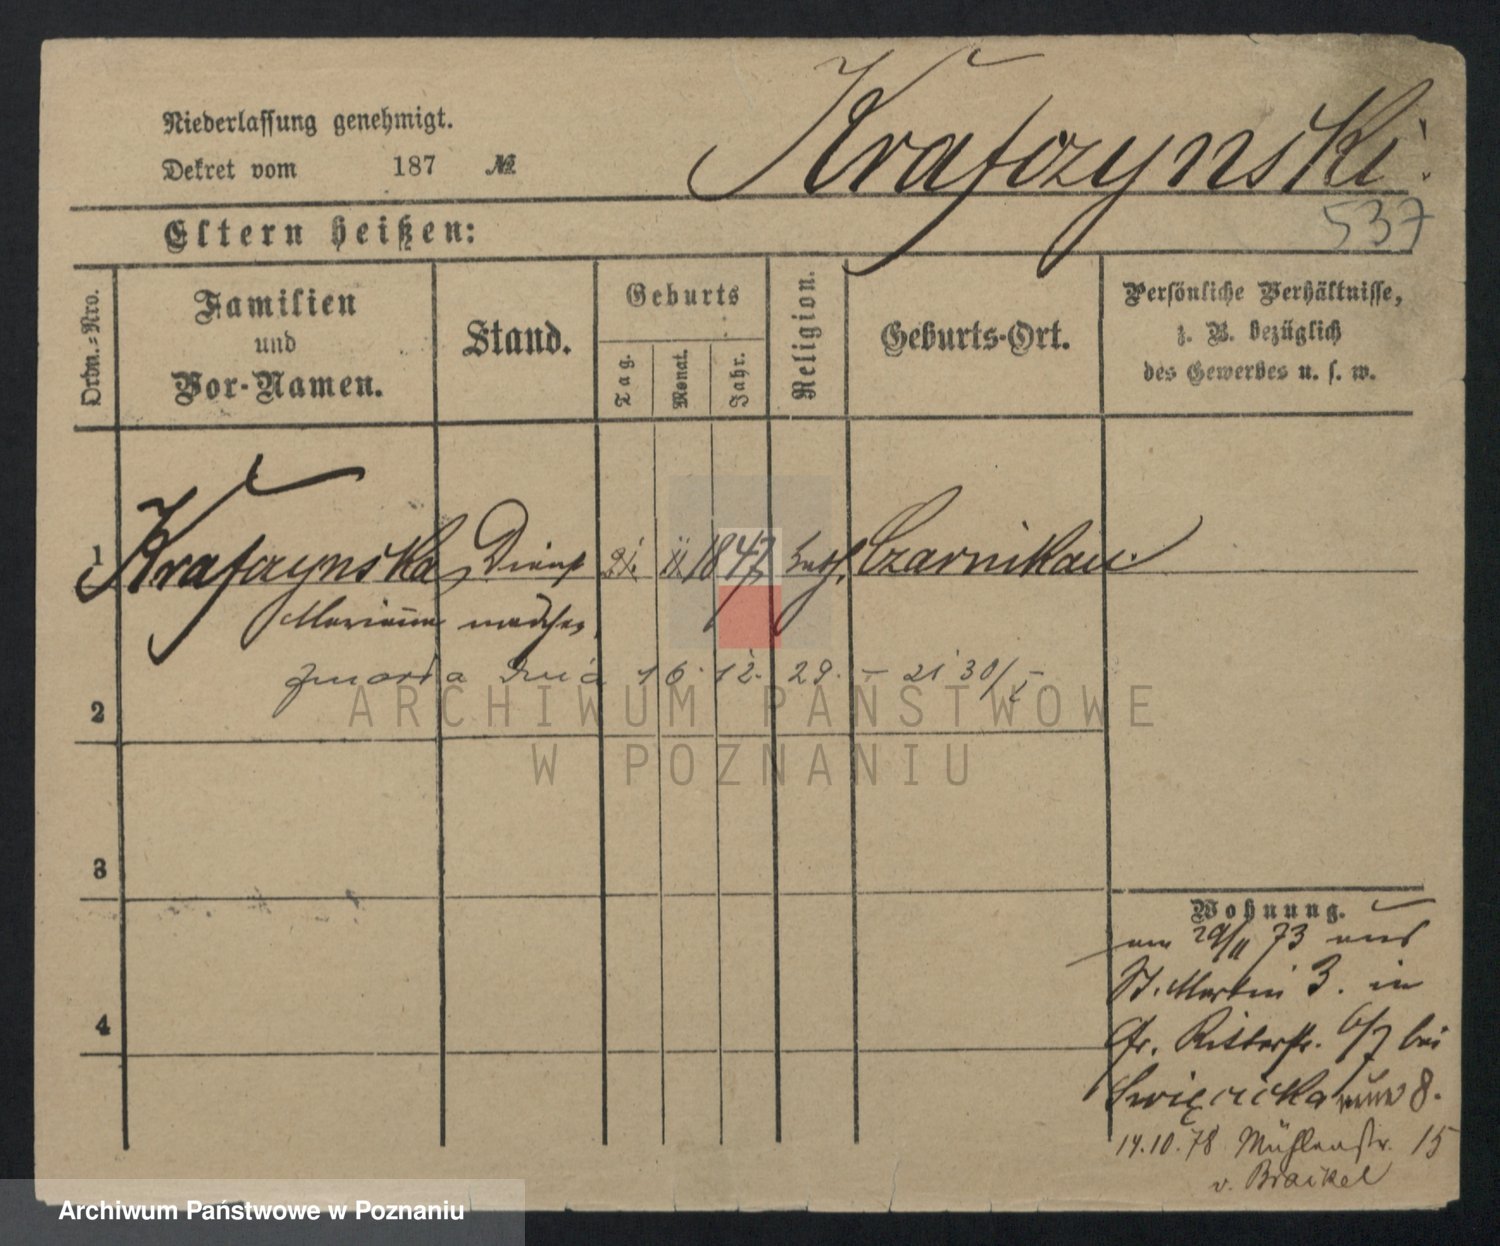 Niederlassung genehmigt.
Krafczynski.
Dekret vom 187 №
537
Eltern heißen:
Ordn.-Nro.
Familien
und
Vor-Namen.
Stand.
Geburts
Tag.
Monat.
Jahr.
Religion.
Geburts-Ort.
Persönliche Verhältnisse,
z. B. bezüglich
des Gewerbes u. s. w.
1 Krafczynska, Dienst 21. 11 1847 kath. Czarnikau.
Marianna mädchen,
zmarła dnia 16. 12. 29. – 21 30/I
2
ARCHIWUM PAŃSTWOWE
W POZNANIU
3
4
Wohnung.
am 29/11 73 aus
St. Martin 3. in
Gr. Ritterstr. 6/7 bei
Swięcicka 8.
14.10.78 Mühlenstr. 15
v. Braikel
Archiwum Państwowe w Poznaniu